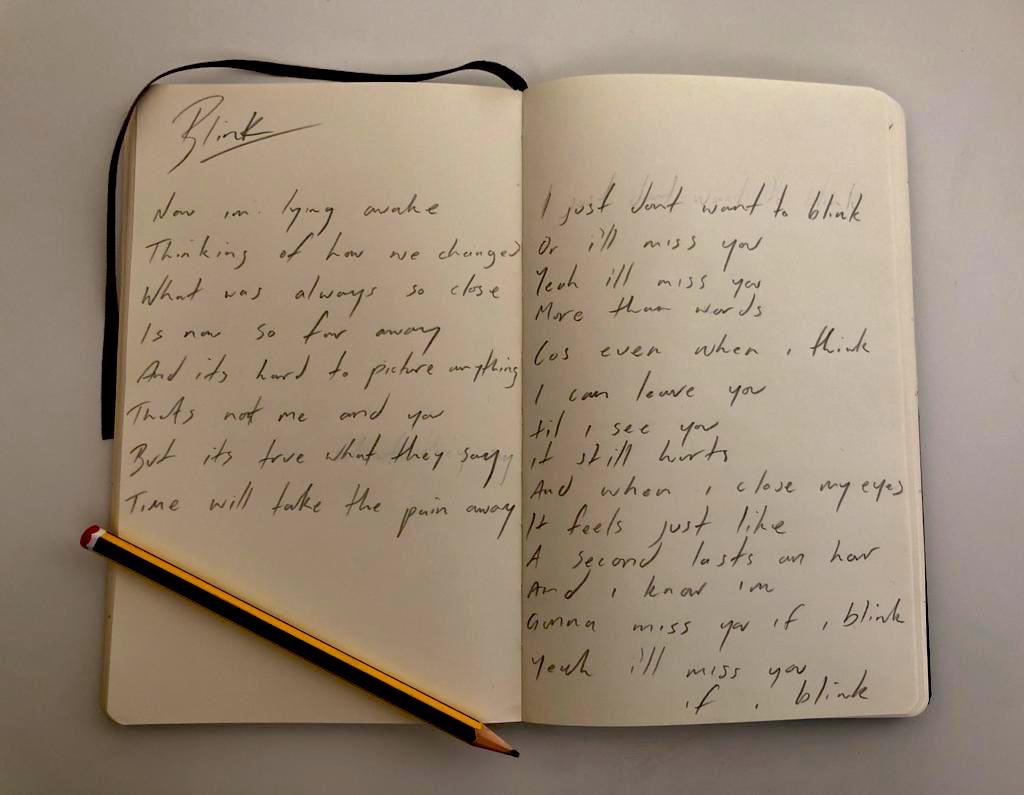 Blink
Now im lying awake
Thinking of how we changed
What was always so close
Is now so far away
And its hard to picture anything
Thats not me and you
But its true what they say
Time will take the pain away
I just dont want to blink
Or i'll miss you
Yeah ill miss you
More than words
Cos even when i think
I can leave you
til i see you
it still hurts
And when i close my eyes
It feels just like
A second lasts an hour
And i know im
Gunna miss you if i blink
Yeah i'll miss you
if i blink